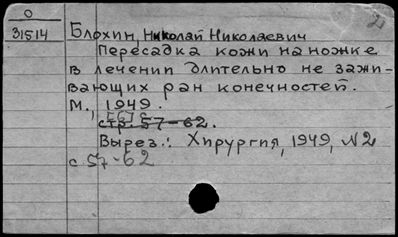 0
31514
Блохин, Николай Николаевич
Пересадка кожи на ножке
в лечении длительно не зажи-
вающих ран конечностей.
М., 1949.
стр. 57-62.
Вырез.: Хирургия, 1949, №2
с. 57-62